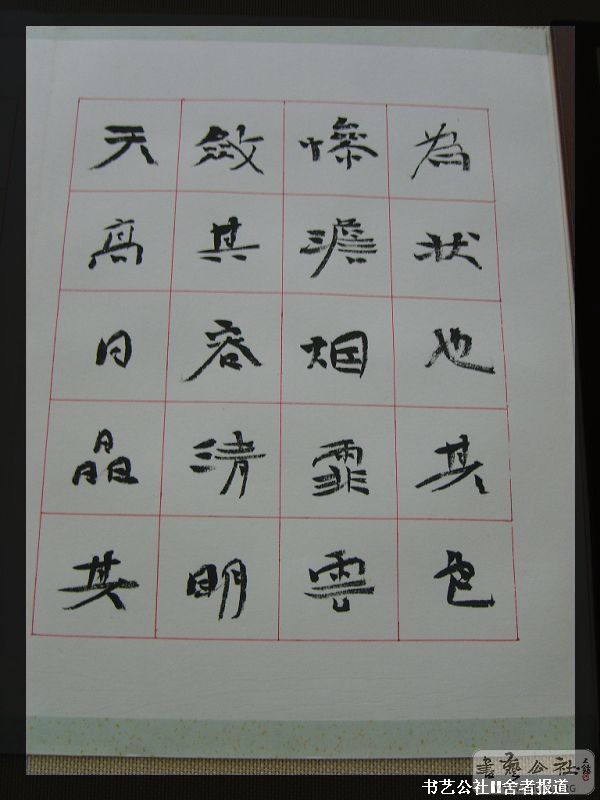 為狀也其色
慘澹烟霏雲
斂其容清明
天高日晶其
書藝公社
书艺公社II舍者报道